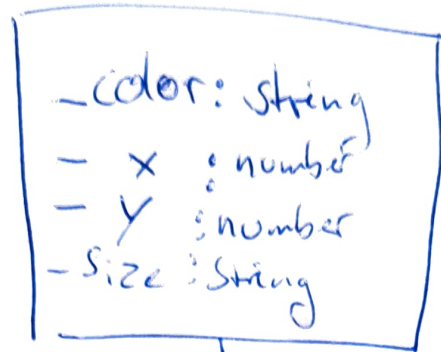 - color: string
- x : number
- y : number
- size : String